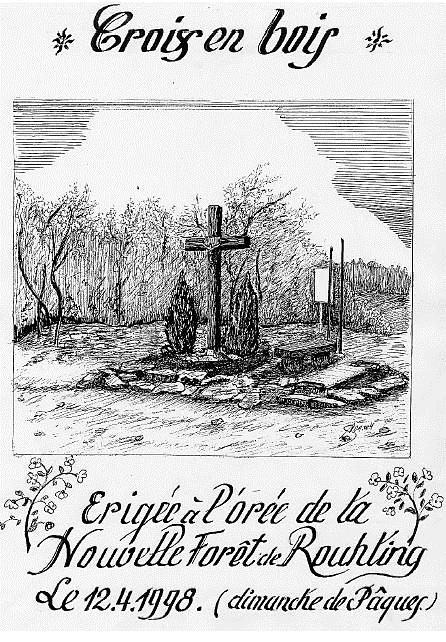 Croix en bois
Erigée à l'orée de la
Nouvelle Forêt de Rouhling
Le 12.4.1998. (dimanche de Pâques)